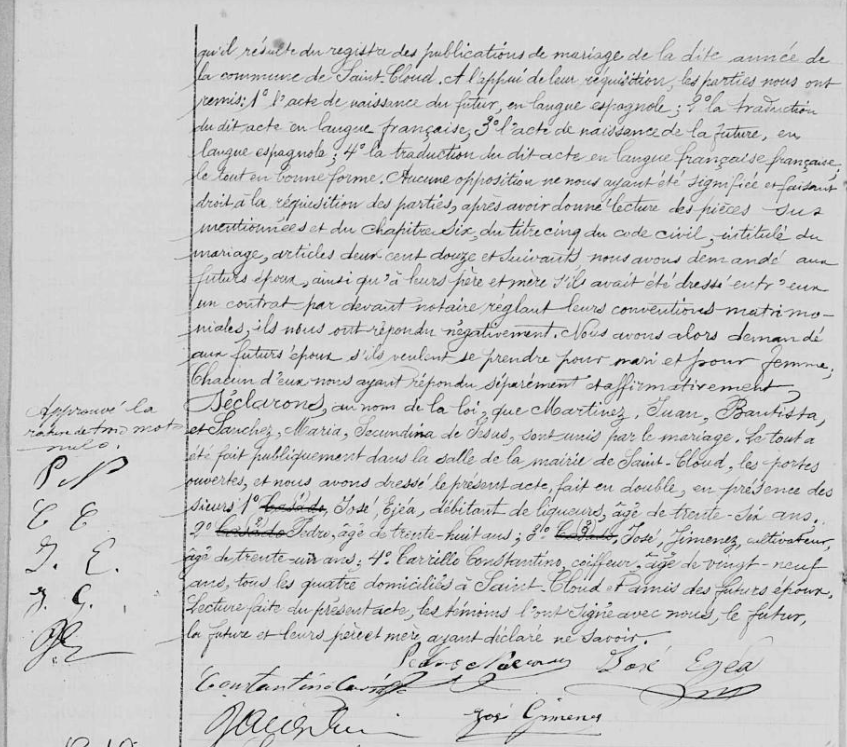 qu'il résulte du registre des publications de mariage de la dite année de
la commune de Saint-Cloud. A l'appui de leur réquisition, les parties nous ont
remis: 1° l'acte de naissance du futur, en langue espagnole; 2° la traduction
du dit acte en langue française; 3° l'acte de naissance de la future, en
langue espagnole; 4° la traduction du dit acte en langue française française,
le tout en bonne forme. Aucune opposition ne nous ayant été signifiée et faisant
droit à la réquisition des parties, après avoir donné lecture des pièces sus
mentionnées et du chapitre six, du titre cinq du code civil, intitulé du
mariage, articles deux cent douze et suivants nous avons demandé aux
futurs époux, ainsi qu'à leurs père et mère s'ils avait été dressé entr'eux
un contrat par devant notaire réglant leurs conventions matrimo-
niales, ils nous ont répondu négativement. Nous avons alors demandé
aux futurs époux s'ils veulent se prendre pour mari et pour femme,
Chacun d'eux nous ayant répondu séparément et affirmativement,
Déclarons, au nom de la loi, que Martinez, Juan, Bautista,
et Sanchez, Maria, Secundina de Jesus, sont unis par le mariage. Le tout a
été fait publiquement dans la salle de la mairie de Saint-Cloud, les portes
ouvertes, et nous avons dressé le présent acte, fait en double, en présence des
sieurs 1° Casado, José, Ejéa, débitant de liqueurs, âgé de trente-six ans.
2° Casado Pedro, âgé de trente-huit ans; 3° Casado, José, Jimenez, cultivateur,
âgé de trente-un ans; 4° Carrillo Constantino, coiffeur, âgé de vingt-neuf
ans, tous les quatre domiciliés à Saint-Cloud et amis des futurs époux.
Lecture faite du présent acte, les témoins l'ont signé avec nous, le futur,
la future et leurs père et mère ayant déclaré ne savoir.
Approuvé la
rature de trois mots
nuls.
P N
C C
J. E.
J. G.
José Egéa
Constantino Carrillo
José Gimenez